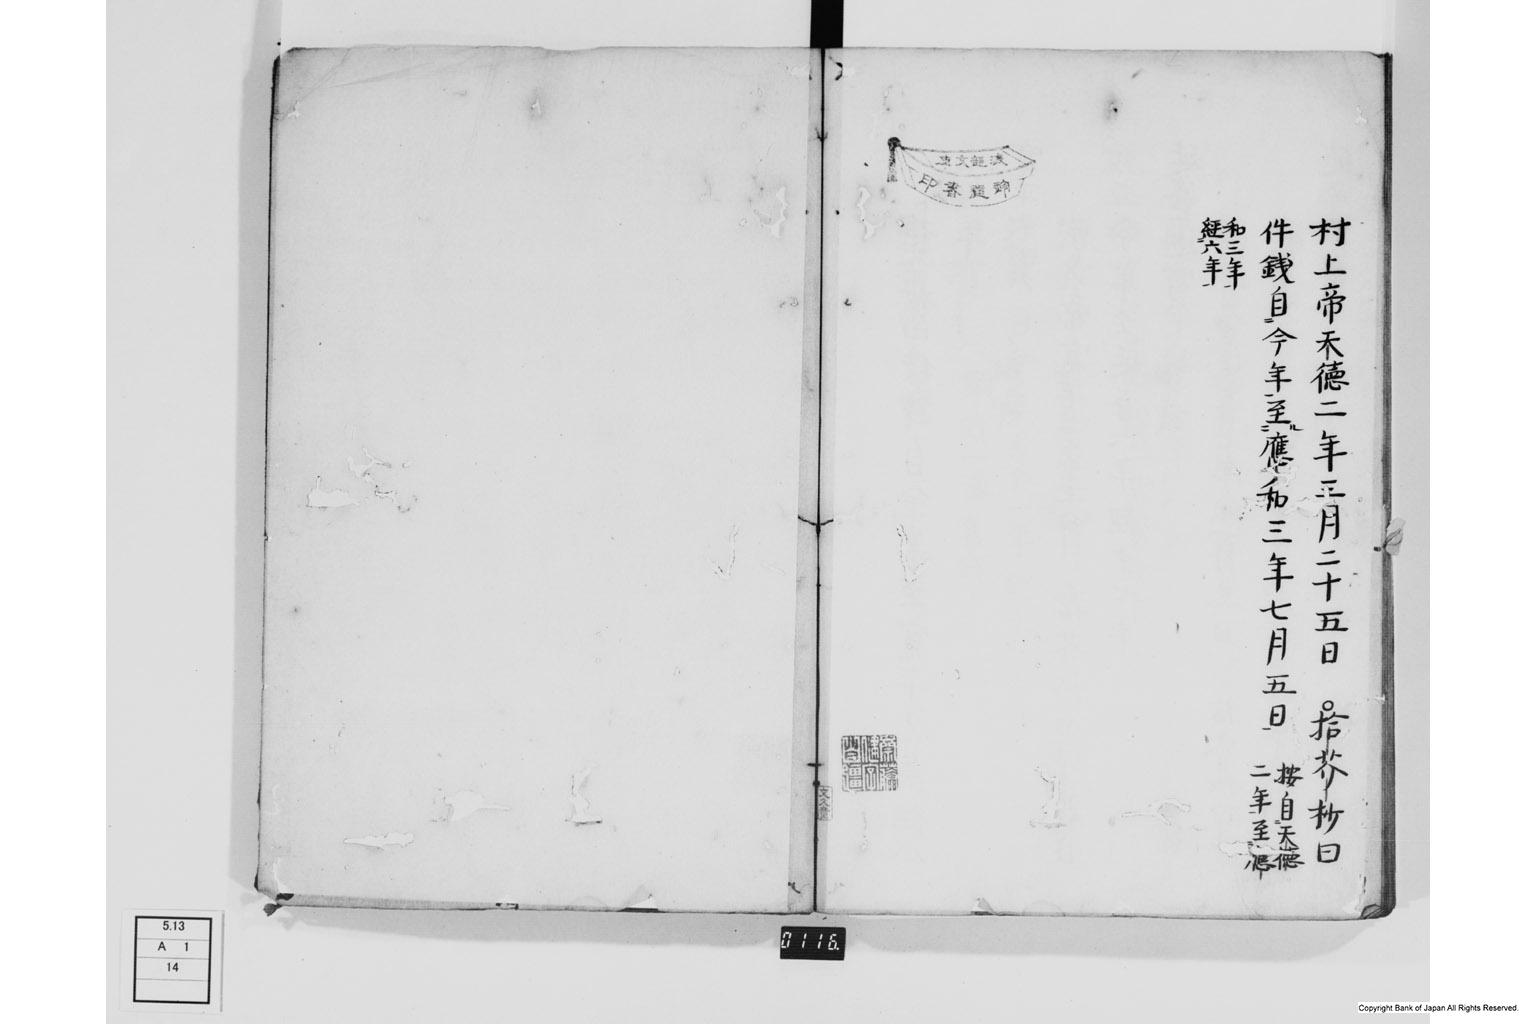 村上帝天德二年三月二十五日　○拾芥抄曰
件錢自今年至應和三年七月五日
按自天德
二年至應
和三年
経六年
文久童
5.13
A 1
14
0116.
Copyright Bank of Japan All Rights Reserved.